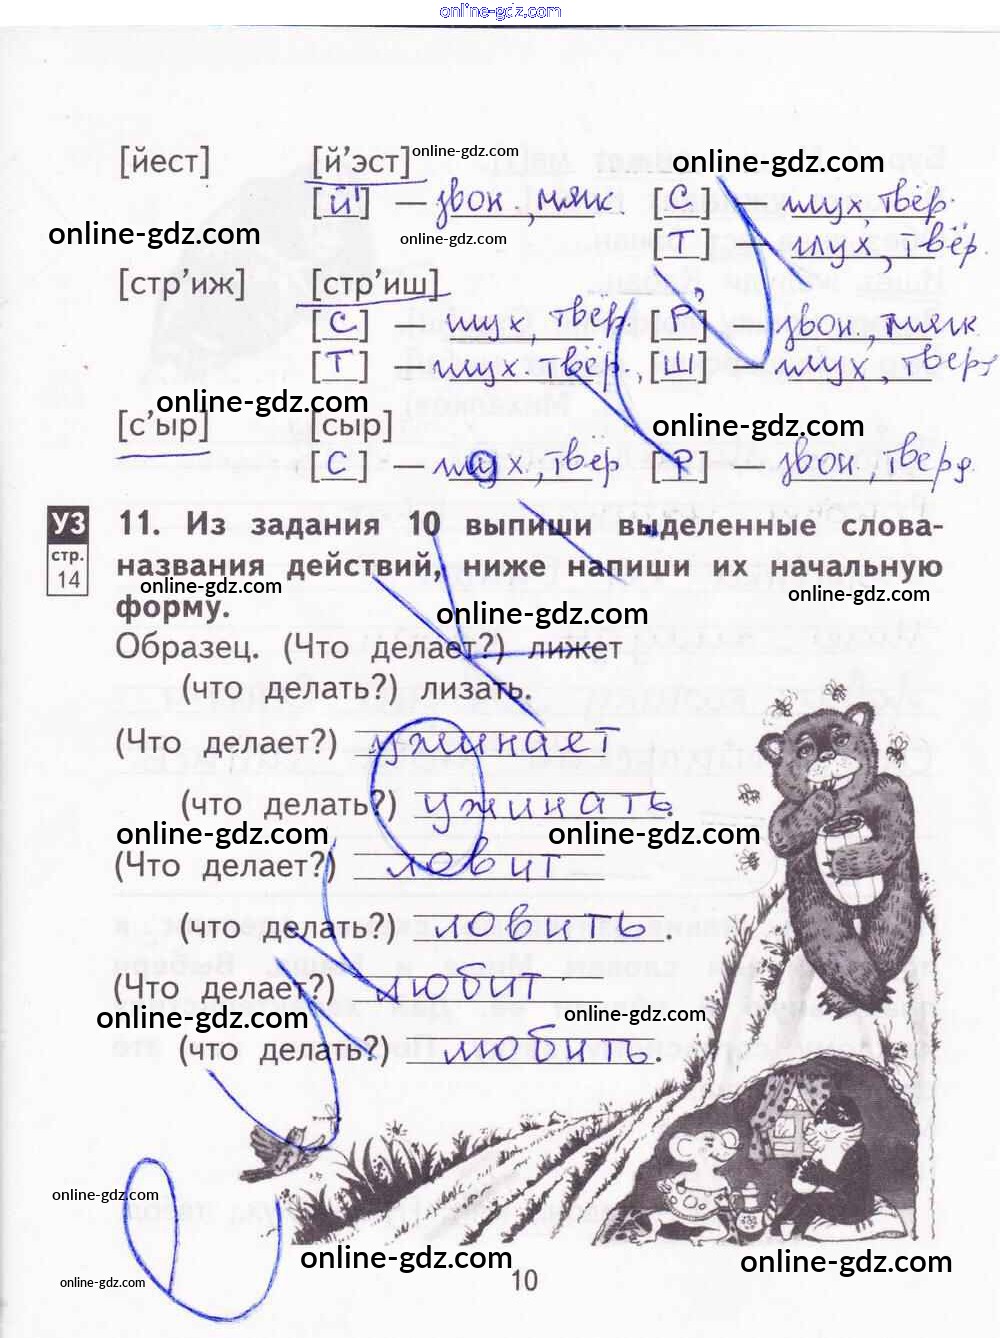 online-gdz.com
[йест] [й’эст] online-gdz.com online-gdz.com
[й'] — звон., мягк. [с] — глух, твёр.
online-gdz.com online-gdz.com [т] — глух, твёр.
[стр’иж] [стр’иш]
[с] — глух, твёр. [р,] — звон, мягк
[т] — глух, твёр., [ш] — глух, тверд
online-gdz.com online-gdz.com
[с’ыр] [сыр]
[с] — глух, твёр [р] — звон, тверд.
УЗ
стр.
14
11. Из задания 10 выпиши выделенные слова-
названия действий, ниже напиши их начальную
online-gdz.com online-gdz.com
форму. online-gdz.com
Образец. (Что делает?) лижет
(что делать?) лизать.
(Что делает?) ужинает
(что делать?) ужинать.
online-gdz.com online-gdz.com
(Что делает?) ловит
(что делать?) ловить.
(Что делает?) любит
online-gdz.com online-gdz.com
(что делать?) любить.
online-gdz.com
online-gdz.com online-gdz.com
online-gdz.com 10